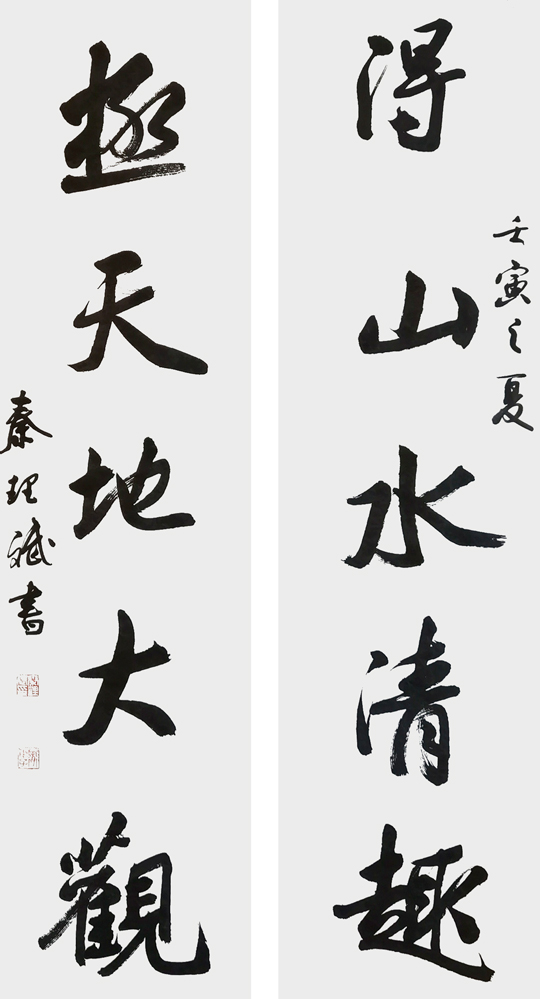 得山水清趣
壬寅之夏
極天地大觀
秦理斌書